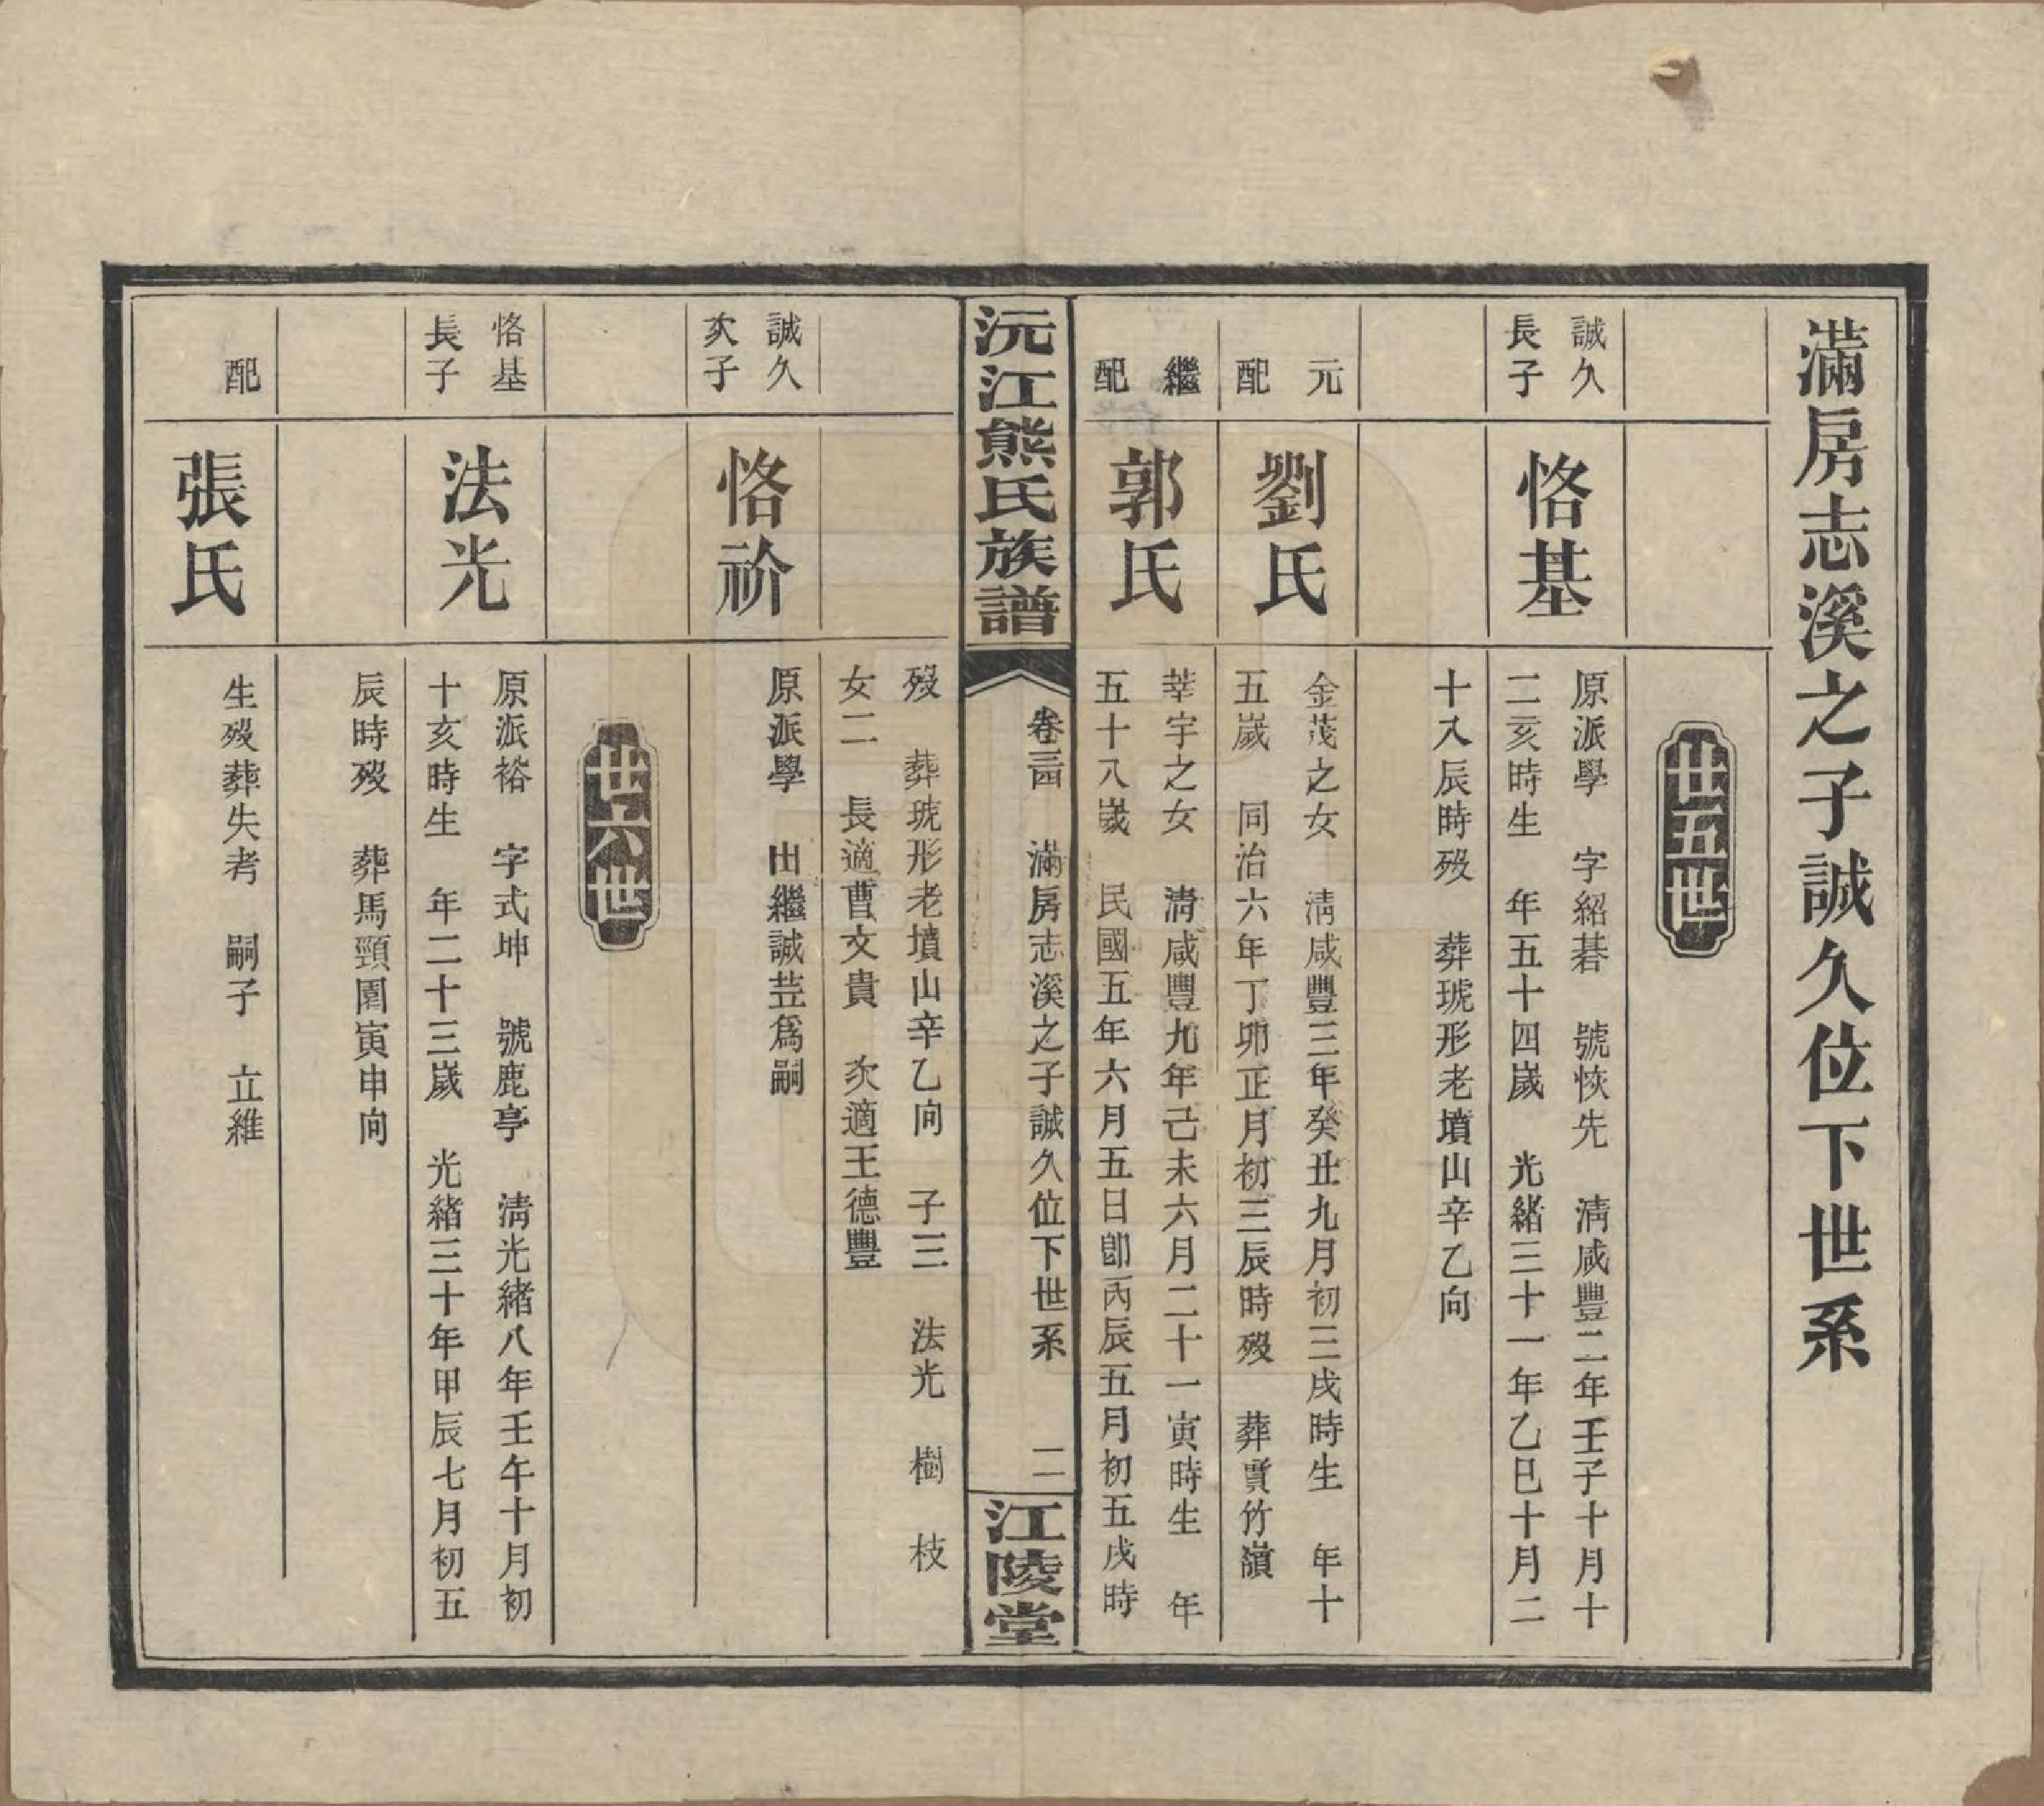 滿房志溪之子誠久位下世系
廿五世
誠久
長子
恪基
原派學　字紹碁　號恢先　淸咸豐二年壬子十月十
二亥時生　年五十四歲　光緖三十一年乙巳十月二
十八辰時歿　葬琥形老墳山辛乙向
元
配
劉氏
金茂之女　淸咸豐三年癸丑九月初三戌時生　年十
五歲　同治六年丁卯正月初三辰時歿　葬實竹嶺
繼
配
郭氏
莘宇之女　淸咸豐九年己未六月二十一寅時生　年
五十八歲　民國五年六月五日卽丙辰五月初五戌時
沅江熊氏族譜
卷三四　滿房志溪之子誠久位下世系　二
江陵堂
歿　葬琥形老墳山辛乙向　子三　法光　樹　枝
女二　長適曹文貴　次適王德豐
誠久
次子
恪衸
原派學　出繼誠荳爲嗣
廿六世
恪基
長子
法光
原派裕　字式坤　號鹿亭　淸光緖八年壬午十月初
十亥時生　年二十三歲　光緖三十年甲辰七月初五
辰時歿　葬馬頸園寅申向
配
張氏
生歿葬失考　嗣子　立維